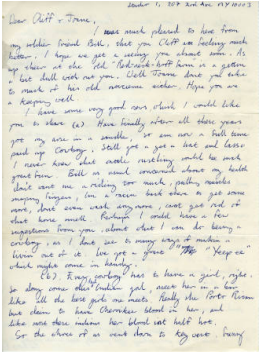 Sender 1, 307 2nd Ave NY 10003
Dear Cliff + Joane,
I was much pleased to hear from
my soldier friend Bob, that you Cliff is feeling much
better. I hope we get a seeing you almost soon. As
up their at the old farm is a gotten
a bit dull with out you. Well Joane don't you take
to much of his old nonsense either. Hope you are
a keeping well
I have some very good news which I would like
you to share (a) Have finally after all these years
got my arse in a saddle, so am now a full time
paid up Cowboy. Still got a get a hat and lasso
I never knew that cattle rustling could be such
great fun. Bill is usual concerned about my health
don't want me a riding too much, pulling
maying fingers, I'm a been back there to get some
more, don't even wash anymore, cant get rid of
that horse smell. Perhaps I could have a few
suggestions from you, about what I can do being a
cowboy, as I don't see to many ways of makin a
livin out of it. Ive got a great " Yeepee"
which might come in handy.
(b) Every cowboy has to have a gal, right.
So along come this Indian gal, meet her in a bar
like all the best girls one meets. Really she Porto Rican
but claim to have Cherokee blood in her, and
like most these indians her blood out half hot.
So the three of us went down to key west. having